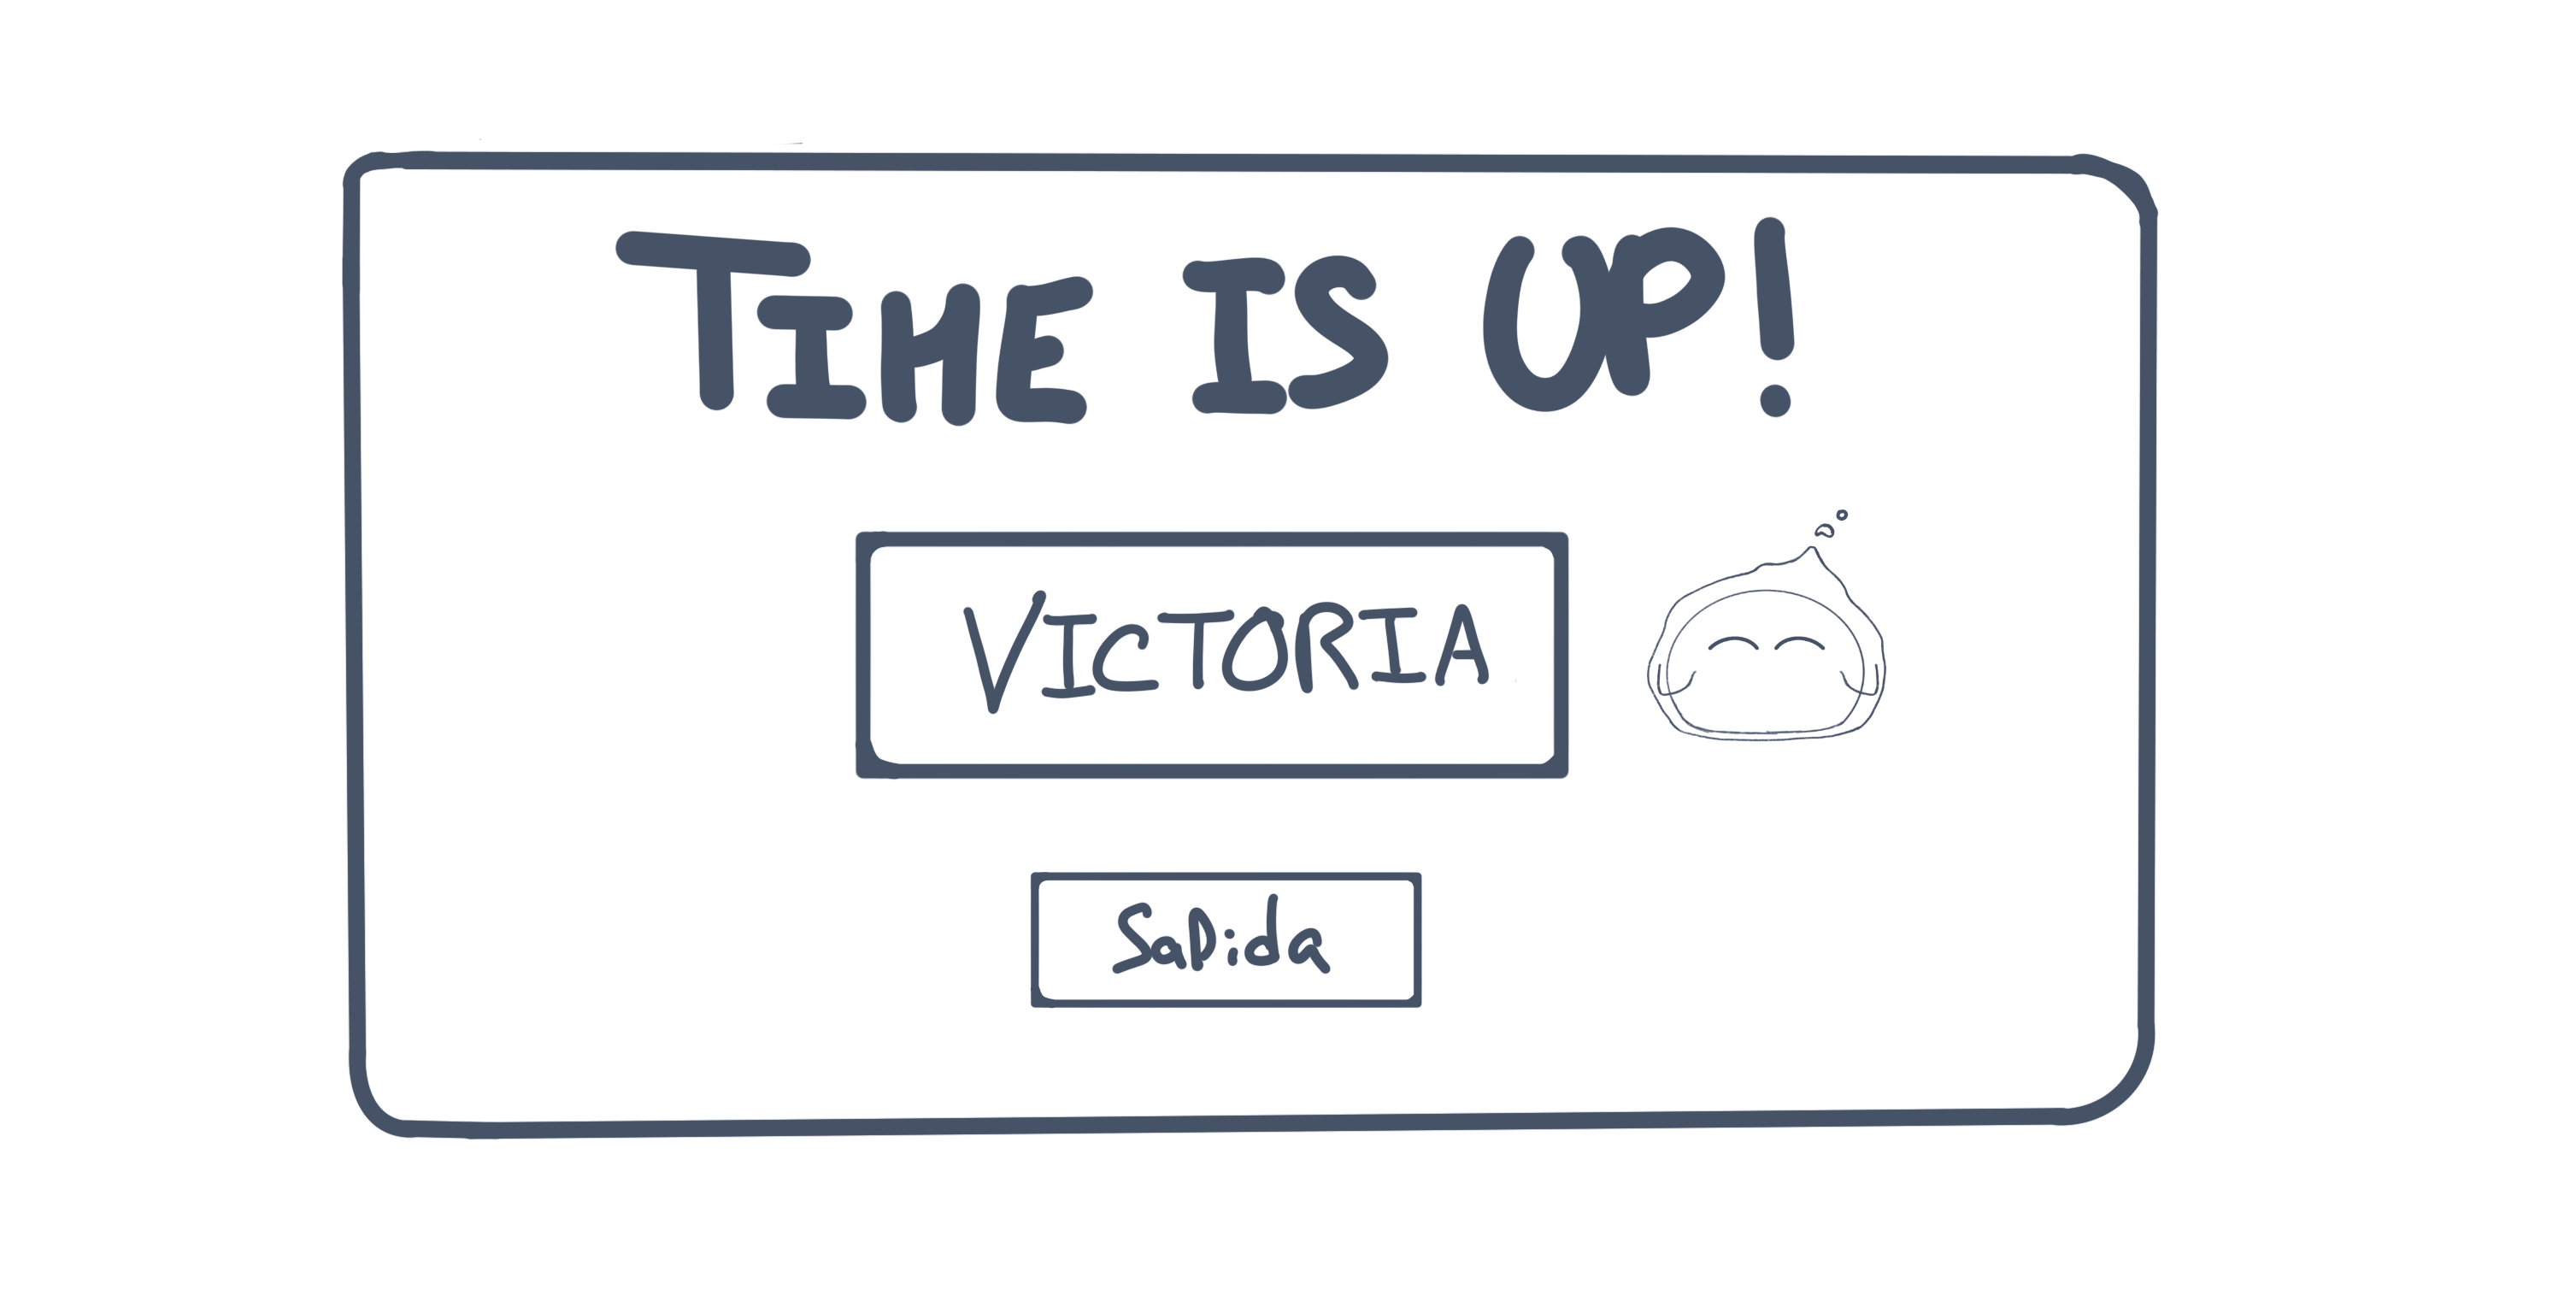 TIME IS UP!
VICTORIA
SaDida